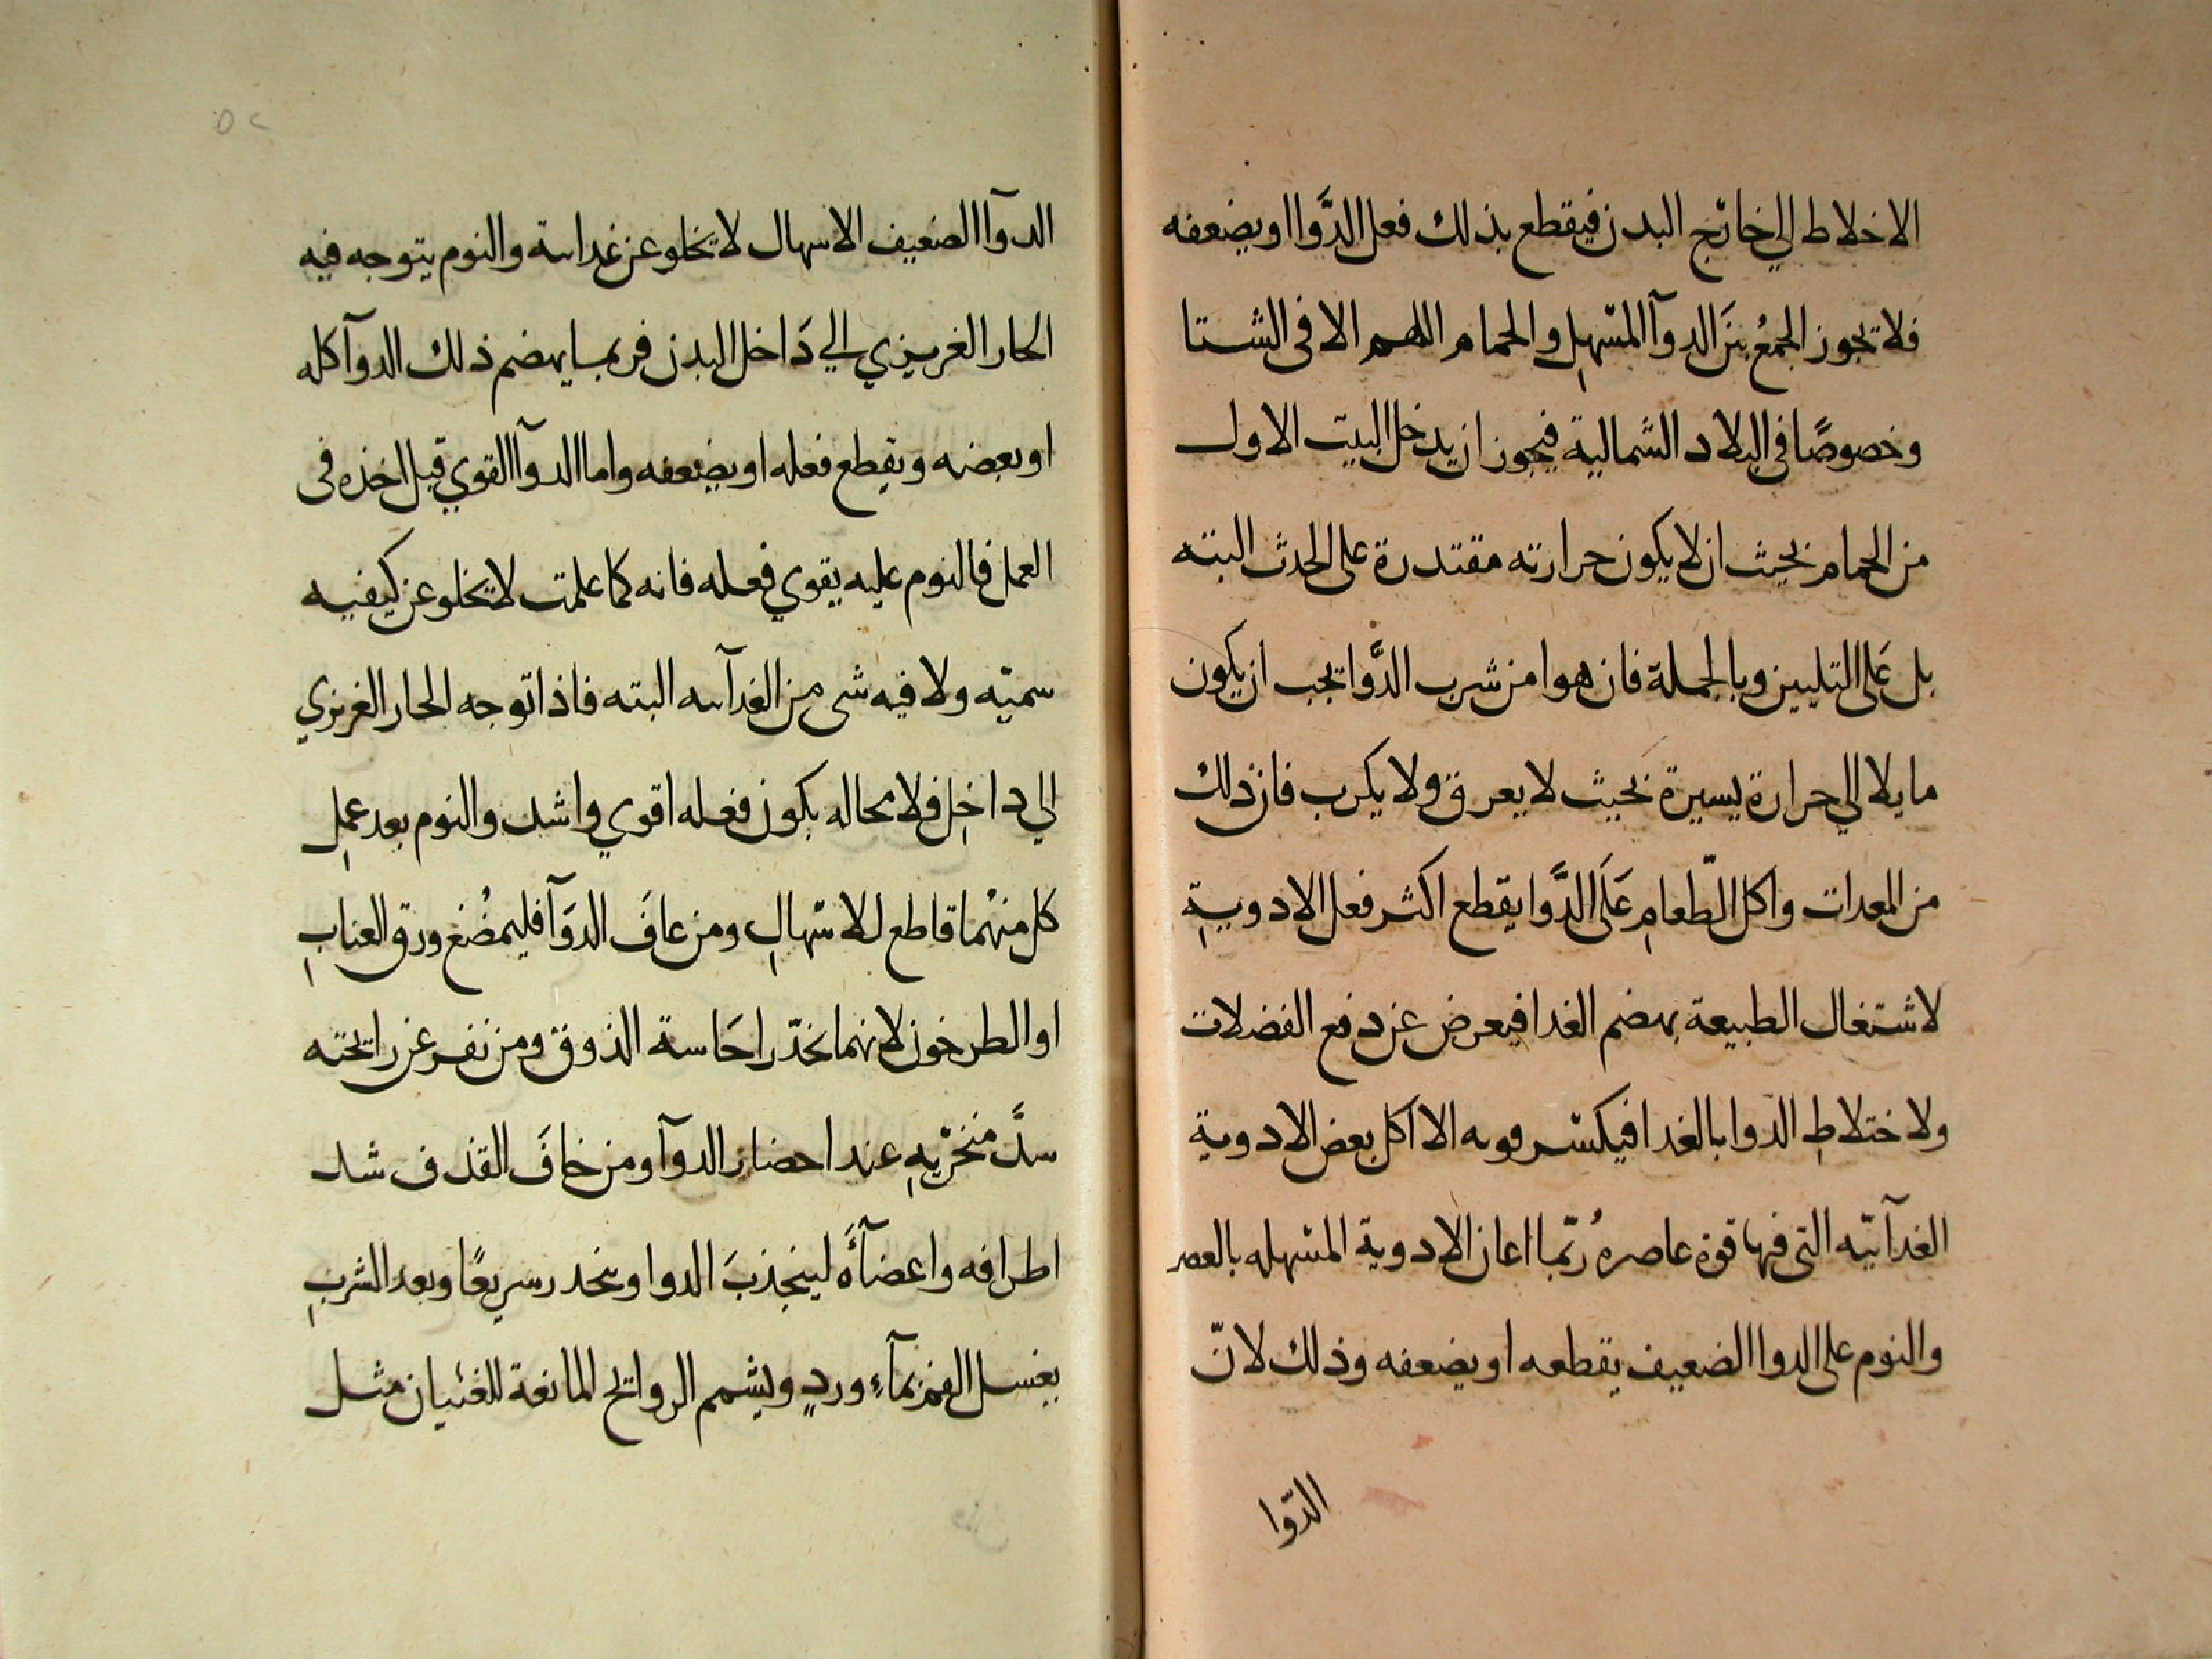 الاخلاط الي خارج البدن فيقطع بذلك فعل الدَّوا او يضعفه
فلا تجوز الجمعُ بينَ الدوآ المسْهِل والحمام اللهم الا فى الشتا
وخصوصًا فى البلاد الشمالية فيجوز ان يدخل البيت الاول
من الحمام بحيث ان لا يكون حرارته مقتدرة على الجذب البته
بل عَلى التليين وبالجملة فان هوا من شرب الدَّوا تجب ان يكون
مايلا الي حرارة يسيرة بحيث لا يعرق ولا يكرب فان ذلك
من المعدات واكل الطّعامِ عَلَى الدَّوا يقطع اكثر فعل الادويةِ
لاشتغال الطبيعة بهضم الغدا فيعرض عن دفع الفضلات
ولاختلاطِ الدوا بالغدا فيكسر قوته الا اكل بعض الادوية
الغدآئيّه التى فيها قوة عاصره رُبّما اعان الادوية المسْهله بالعصر
والنوم على الدوا الضعيف يقطعه او يضعفه وذلك لانّ
الدّوا
٥٢
الدوآ الضعيف الاسهال لا تخلو عن غدائية والنوم يتوجه فيه
الحار الغريزي الي دَاخل البدن فربما يهضم ذلك الدوآ كله
او بعضه ويقطع فعله او يضعفه واما الدوآ القوي قبل اخذه فى
العمل فالنوم عليه يقوي فعله فانه كما علمت لا تخلو عن كيفيه
سميّه ولا فيه شى من الغدآئيه البته فاذا توجه الحار الغريزي
الي داخِل فلا محاله يكون فعله اقوي واشد والنوم بعد عمِل
كل منهْما قاطع للاسْهالِ ومن عافَ الدوَآ فليمضُغ ورق العنابِ
او الطرخون لانهما يخدّرا حَاسة الذوق ومن نفر عن رايحته
سدَّ منخريْهِ عند احضار الدوآ ومن خافَ القذف شد
اطرافه واعضآءَه لينجذبَ الدوا وينحدر سريعًا وبعد الشربِ
يغسل الفم بمآءِ وردٍ ويشمم الروايح المانعة للغثيان مثل